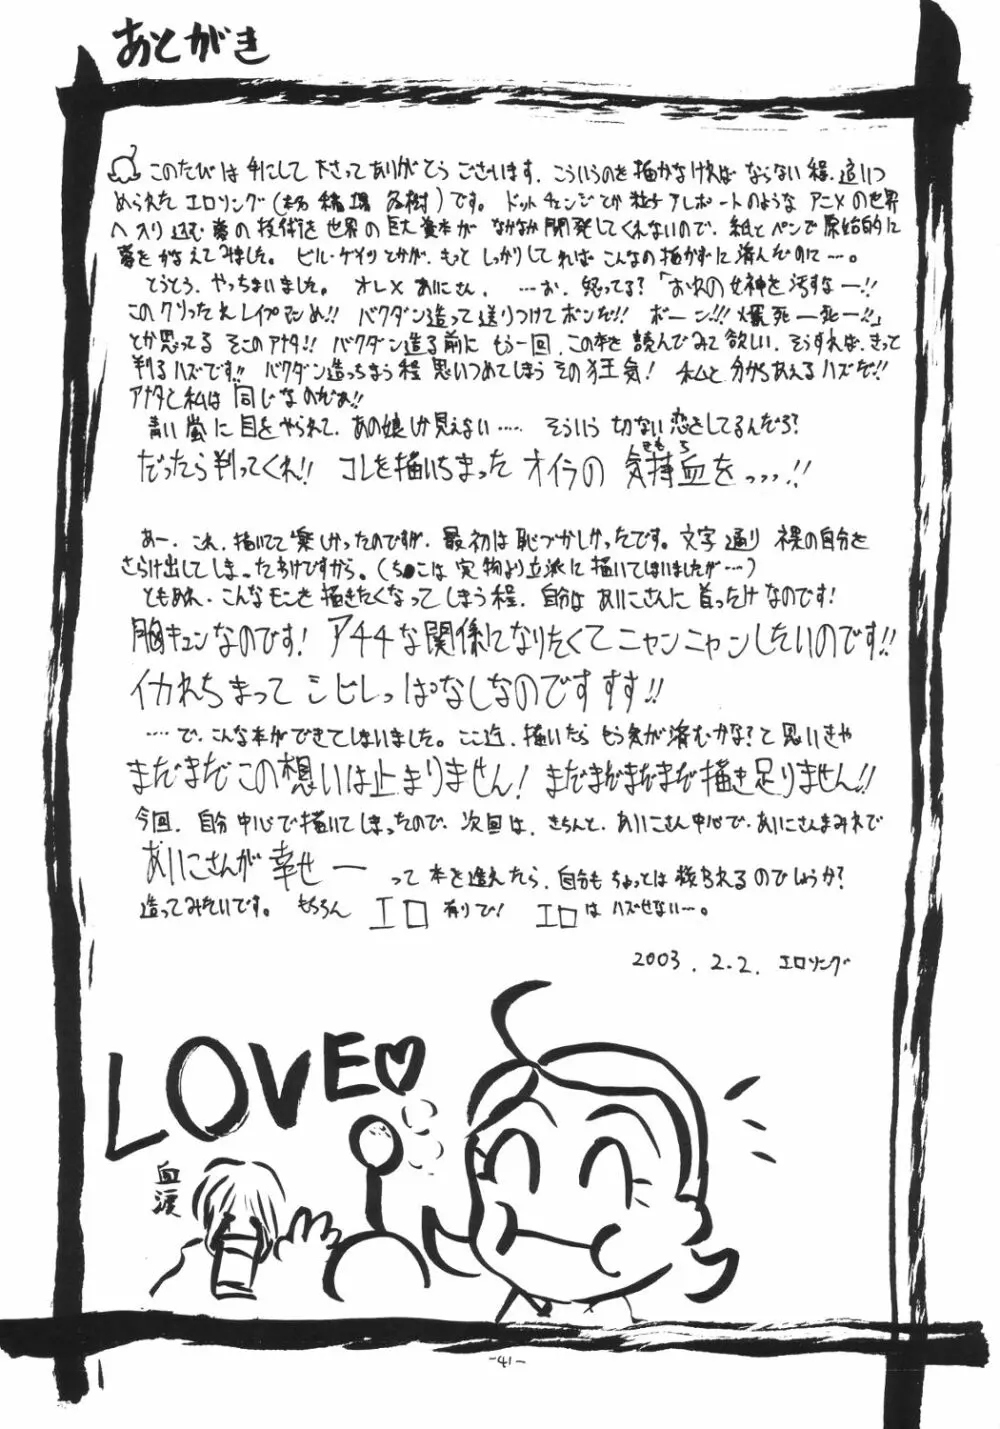 あとがき
このたびは手にして下さってありがとうございます。こういうのを描かなければならない程、追いつ
められたエロソング(です。ドットチェンジとか粒子テレポートのようなアニメの世界
へ入り込む夢の技術を世界の巨大資本がなかなか開発してくれないので、紙とペンで原始的に
夢をかなえてみました。ビル・ゲイツとかが、もっとしっかりしてればこんなの描かずに済んだのに…。
とうとう、やっちまいました。オレ×あにさん。…お、怒ってる?「おれの女神を汚すなー!!
このクソったれレイプマンめ!! バクダン造って送りつけてボンだ!! ボーン!!! 爆死ー死ー!!」
とか思ってるそこのアナタ!! バクダン造る前にもう一回、この本を読んでみて欲しい。そうすれば、きっと
判るハズです!! バクダン造っちまう程思いつめてしまうその狂気! 私と分かちあえるハズだ!!
アナタと私は同じなのだぁ!!
青い蛍に目をやられて、あの娘しか見えない…… そういう切ない恋をしてるんだろ?
だったら判ってくれ!! コレを描いちまったオイラの気持血(きもち)を…!!
あー、これ、描いてて楽しかったのですが、最初は恥づかしかったです。文字通り裸の自分を
さらけ出してしまったわけですから。(ち●こは実物より立派に描いてしまいましたが…)
ともあれ、こんなモンを描きたくなってしまう程、自分はあにこさんに首ったけなのです!
胸キュンなのです! アチチな関係になりたくてニャンニャンしたいのです!!
イカれちまってシビレっぱなしなのですすす!!
……で、こんな本ができてしまいました。ここ迄、描いたらもう気が済むかな?と思いきや
まだまだこの想いは止まりません! まだまだまだまだ描き足りません!!
今回、自分中心で描いてしまったので、次回は、きちんと、あにこさん中心で、あにこさんまみれで
あにこさんが幸せー って本を造えたら、自分もちょっとは救われるのでしょうか?
造ってみたいです。もちろんエロ有りで! エロはハズせない…。
2003.2.2. エロソング
LOVE♡
血涙
-41-